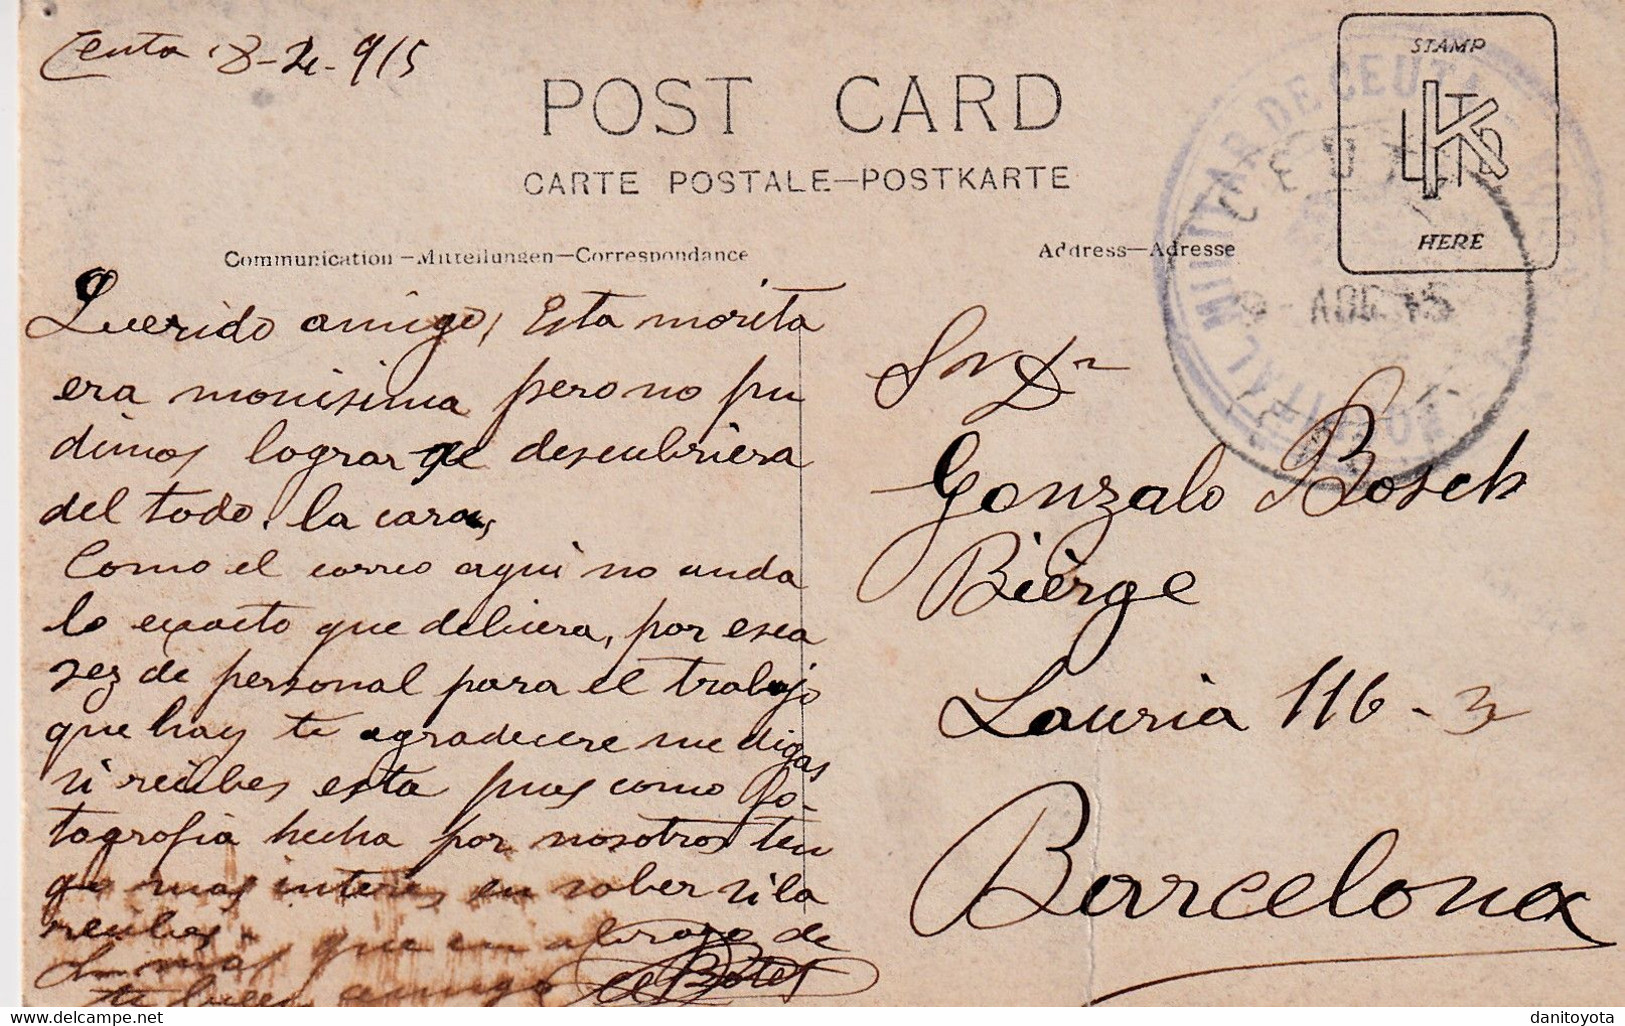 Ceuta 8-2-915
STAMP
K LTD
HERE
POST CARD
CARTE POSTALE—POSTKARTE
Communication—Mitteilungen—Correspondance
Address—Adresse
MILITAR DE CEUTA
CEUTA
AGO 15
Querido amigo, Esta morita
era monisima pero no pu
dimos lograr qe descubriera
del todo. la cara,
Como el correo aqui no anda
lo exacto que debiera, por esca
sez de personal para el trabajo
que hay te agradecere me digas
si recibes esta pues como fo-
tografia hecha por nosotros ten
go mas interes en saber si la
recibes.
Sin mas que un abrazo de
tu buen amigo
Sr Dn
Gonzalo Bosch
Bierge
Lauria 116 - 3
Barcelona
danitoyota.com